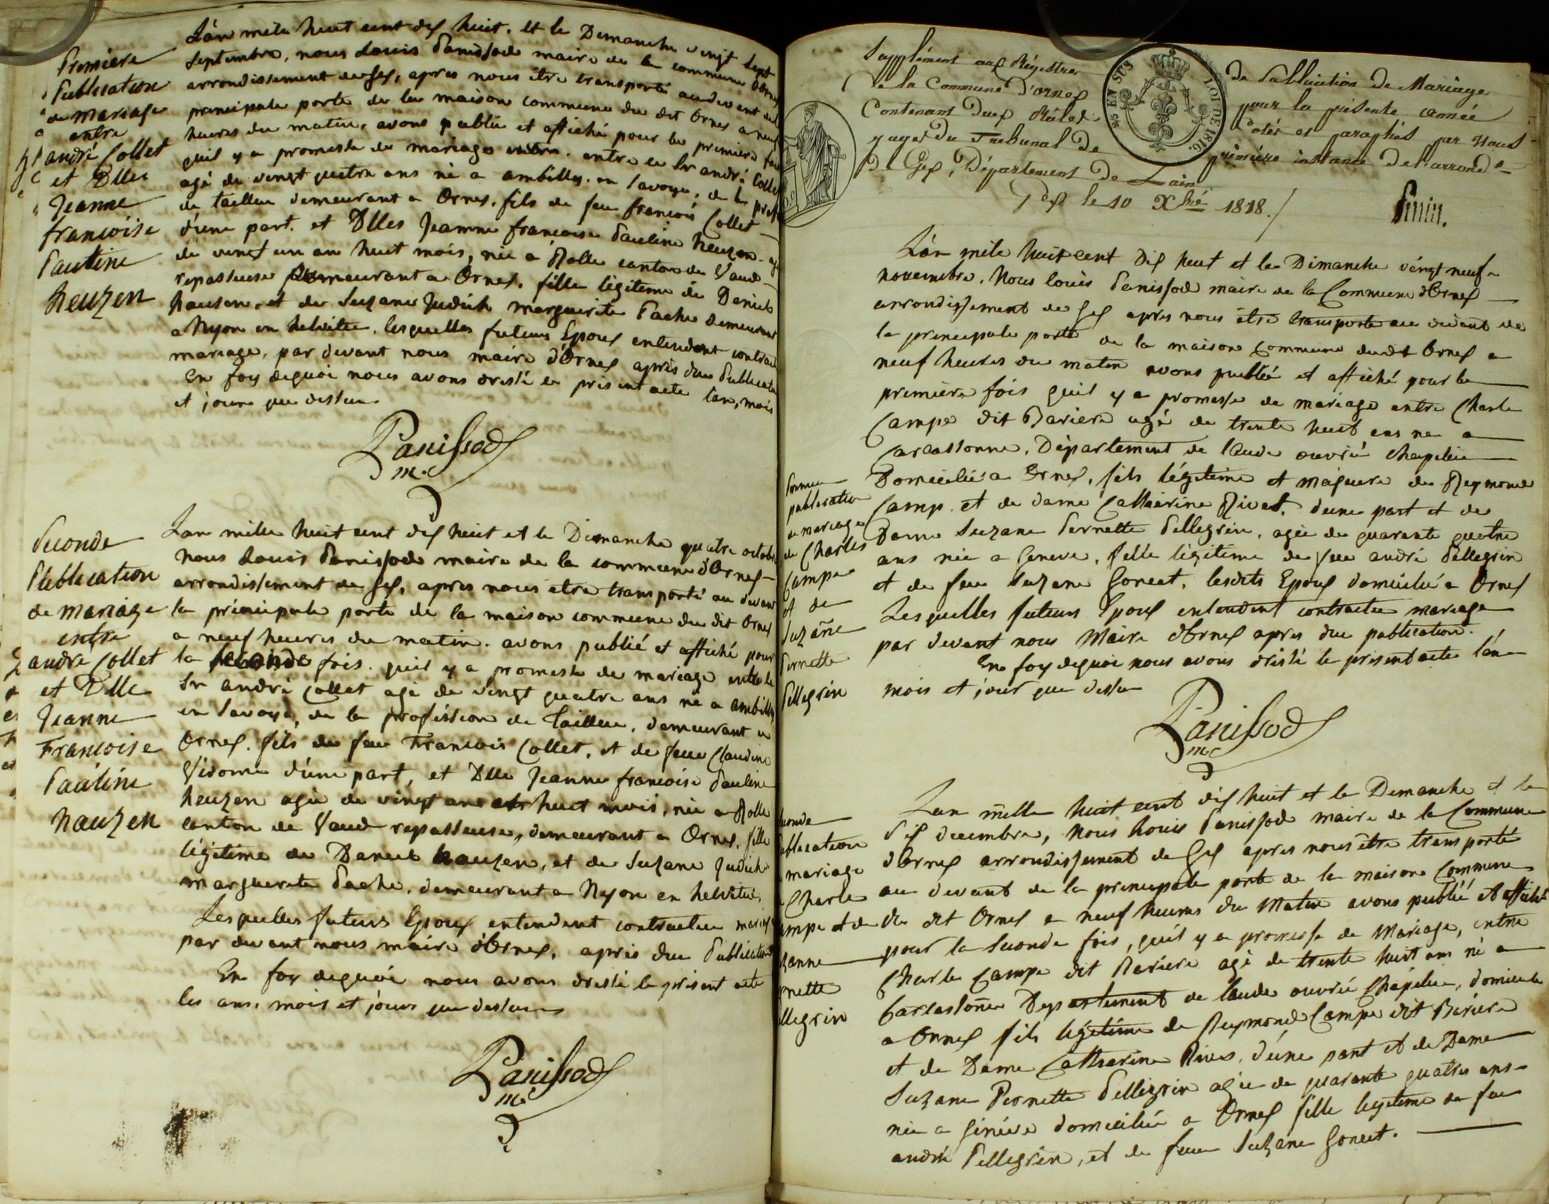 Première
Publication
de mariage
entre
andré Collet
et Dlle
Jeanne
francoise
Pauline
heuzen
L'an mile huit cent dix huit, et le Dimanche vingt sept
septembre, nous Louis Panissod maire de la commune d'Ornex
arrondissement de Gex, apres nous être transporté au devant de
principale porte de la maison commune du dit Ornex a neuf
heures du matin, avons publié et affiché pour la première fois
quil y a promesse de mariage entre le Sr andré Collet
agé de vingt quatre ans né a ambilly en Savoye, de la prof
de tailleur demeurant a Ornex, fils de feu francois Collet
d'une part. et Dlles Jeanne francoise Pauline heuzen
de vingt un ans huit mois, née a Rolle canton de Vaud
repasseuse Demeurant a Ornex, fille légitime de Daniel
hauzen, et de Suzane Judith marguerite Pache Demeurant
a Nyon en helvétie, lesquelles futurs Epoux entendent contrac
mariage, par devant nous maire d'Ornex après due Publication
En foy dequoi nous avons dressé le présent acte l'an, mois
et jour que dessus
Panissod
m.
Seconde
Publication
de mariage
entre
andré Collet
et Dlle
Jeanne
Francoise
Pauline
hauzen
L'an mille huit cent dix huit et le Dimanche quatre octobre
nous Louis Panissod maire de la commune d'Ornex
arrondissement de Gex, apres nous etre transporté au devant
la principale porte de la maison commune du dit Ornex
a neuf heures du matin, avons publié et affiché pour
la seconde fois quil y a promesse de mariage entre le
Sr andré Collet agé de vingt quatre ans né a ambilly
en Savoye, de la profession de Tailleur, demeurant a
Ornex, fils de feu Francois Collet, et de feue Claudine
Vidonne d'une part, et Dlle Jeanne francoise Pauline
heuzen agée de vingt ans huit mois, née a Rolle
canton de Vaud repasseuse, demeurant a Ornex, fille
légitime de Daniel hauzen, et de Suzane Judith
marguerite Pache, demeurant a Nyon en helvétie,
Lesquelles futurs Epoux entendent contracter mariage
par devant nous maire d'Ornex, après due Publication
En foy dequoi nous avons dressé le présent acte
les ans, mois et jours que dessus
Panissod
m.
Supplément aux Régistre de Publication de Mariage
de la Commune d'ornex pour la présente année
Contenant deux feuilet Cotés et paraphés par Nous
juge du Tribunal de première instance de l'arrond
de Gex, Département de Lain
Gex le 10 Xbre 1818.
EN SUS
TOUT RIG
L'an mile huit cent Dix huit et le Dimanche vingt neuf
novembre, Nous Louis Panissod maire de la Commune d'Ornex
arrondissement de Gex apres nous être transporté au devant de
la principale porte de la maison commune du dit Ornex a
neuf heures du matin avons publié et affiché pour la
première fois quil y a promesse de mariage entre Charle
Campe dit Bariere agé de trente huit ans né a
Carcassonne, Département de l'aude ouvrié chapelier
Domicilié a Ornex, fils légitime et majeure de Reymond
Camp, et de dame Catherine Rives, d'une part et de
Dame Suzane Pernette Pellegrin, agée de quarante quatre
ans née a Geneve, fille légitime de feu andré Pellegrin
et de feue Suzane Gonet, lesdits Epoux domicilié a Ornex
Lesquelles futurs Epoux entendent contracter mariage
par devant nous Maire d'Ornex apres due publication.
En foy dequoi nous avons dréssé le présent acte l'an
mois et jour que dessus
publication
de mariage
de Charles
Campe
et de
Suzane
Pernette
Pellegrin
Panissod
m.
L'an mille huit cent dix huit et le Dimanche et le
dix décembre, nous Louis Panissod maire de la Commune
d'Ornex arrondissement de Gex apres nous être transporté
au devant de la principale porte de la maison Commune
du dit Ornex a neuf heures du Matin avons publié et affiché
pour la Seconde fois, quil y a promesse de Mariage, entre
Charle Campe dit Bariere agé de trente huit ans né a
Carcassonne Département de laude ouvrié Chapelier, domicilié
a Ornex fils légitime de Reymond Campe dit Bériere
et de Dame Catherine Rives, d'une part et de Dame
Suzane Pernette Pellegrin agée de quarante quatre ans
née a Généve domiciliée a Ornex fille légitime de feu
andré Pellegrin, et de feue Suzane Gonet.
conde
ublication
mariage
Charle
ampe et de
zanne
rnette
llegrin